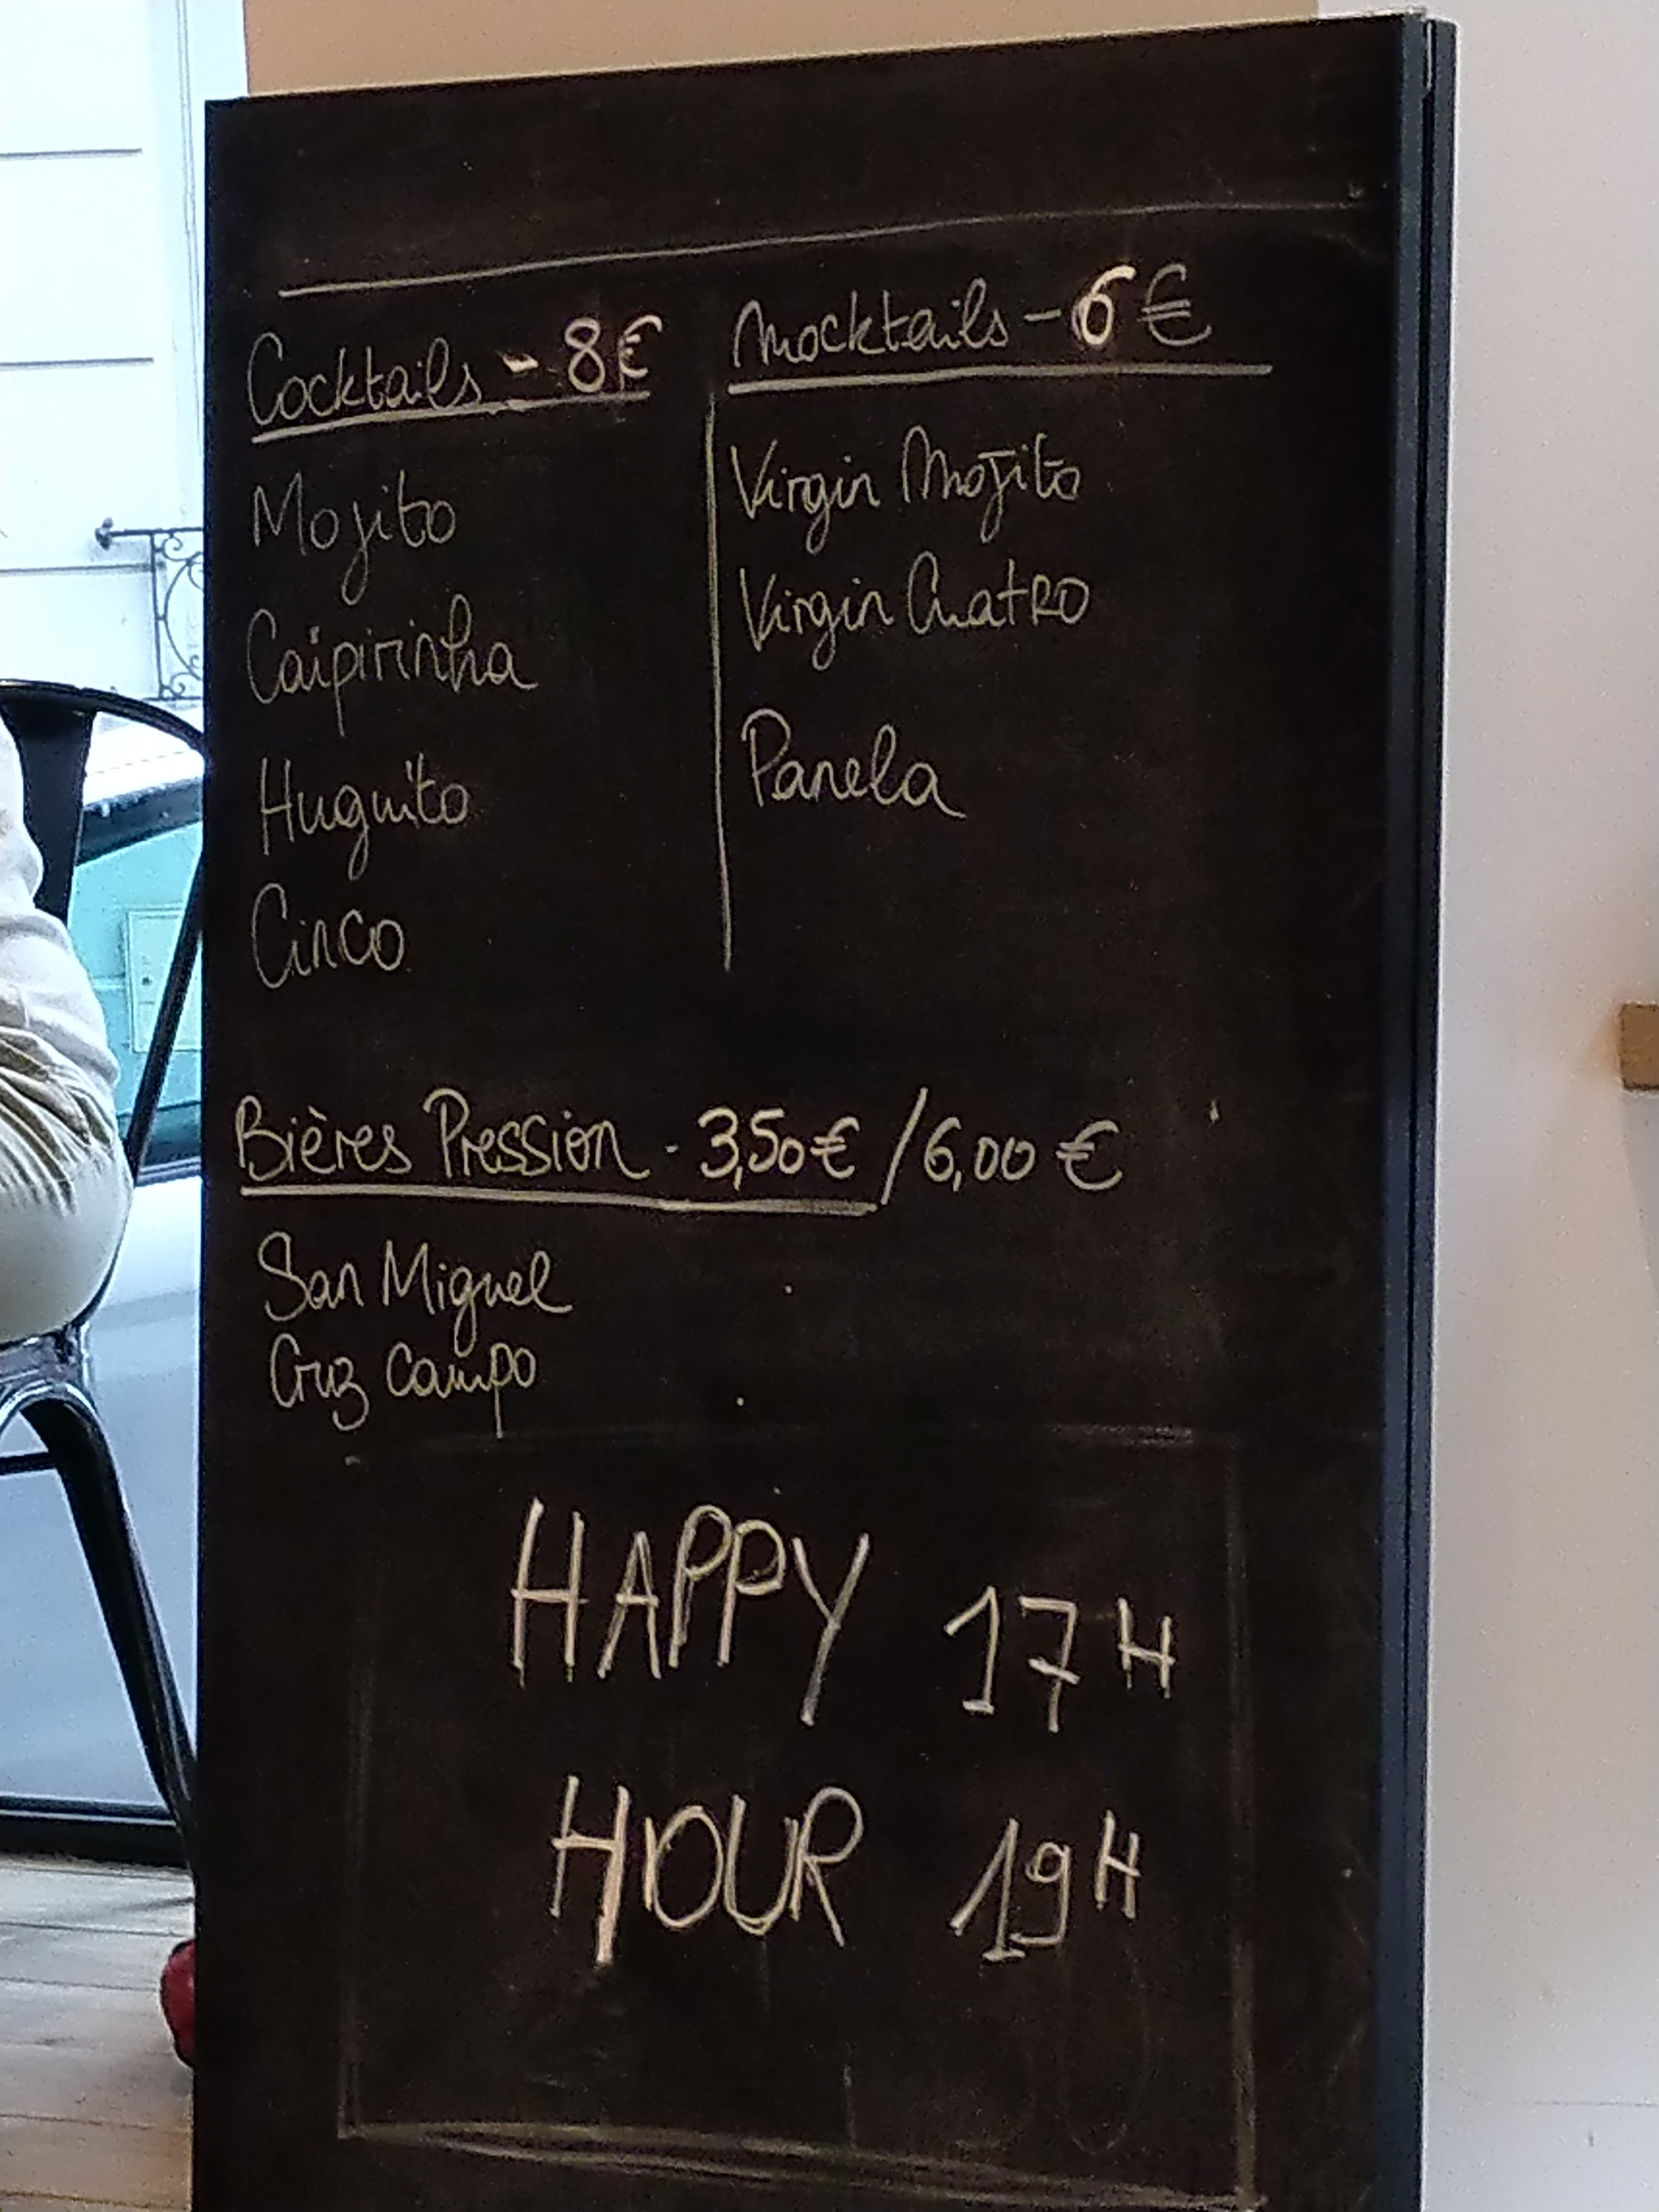 Cocktails - 8€
Mojito
Caïpirinha
Huguito
Cinco
Mocktails - 6€
Virgin Mojito
Virgin Cuatro
Panela
Bières Pression - 3,50€ / 6,00 €
San Miguel
Cruz campo
HAPPY 17H
HOUR 19H